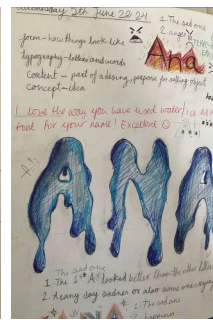 Wednesday 5th June 2024
1. The sad one
2. anger
form - how things look like
typography - letters and words
Content - part of a desing, purpose for selling object
Concept - idea
Ana
I love the way you have used water/ as
font for your name! Excellent
A N A
The sad one
1. The 1st "A" looked better than the other letters
2. Teany day sadnes or also some one crying
1. The sad one
2. happiness